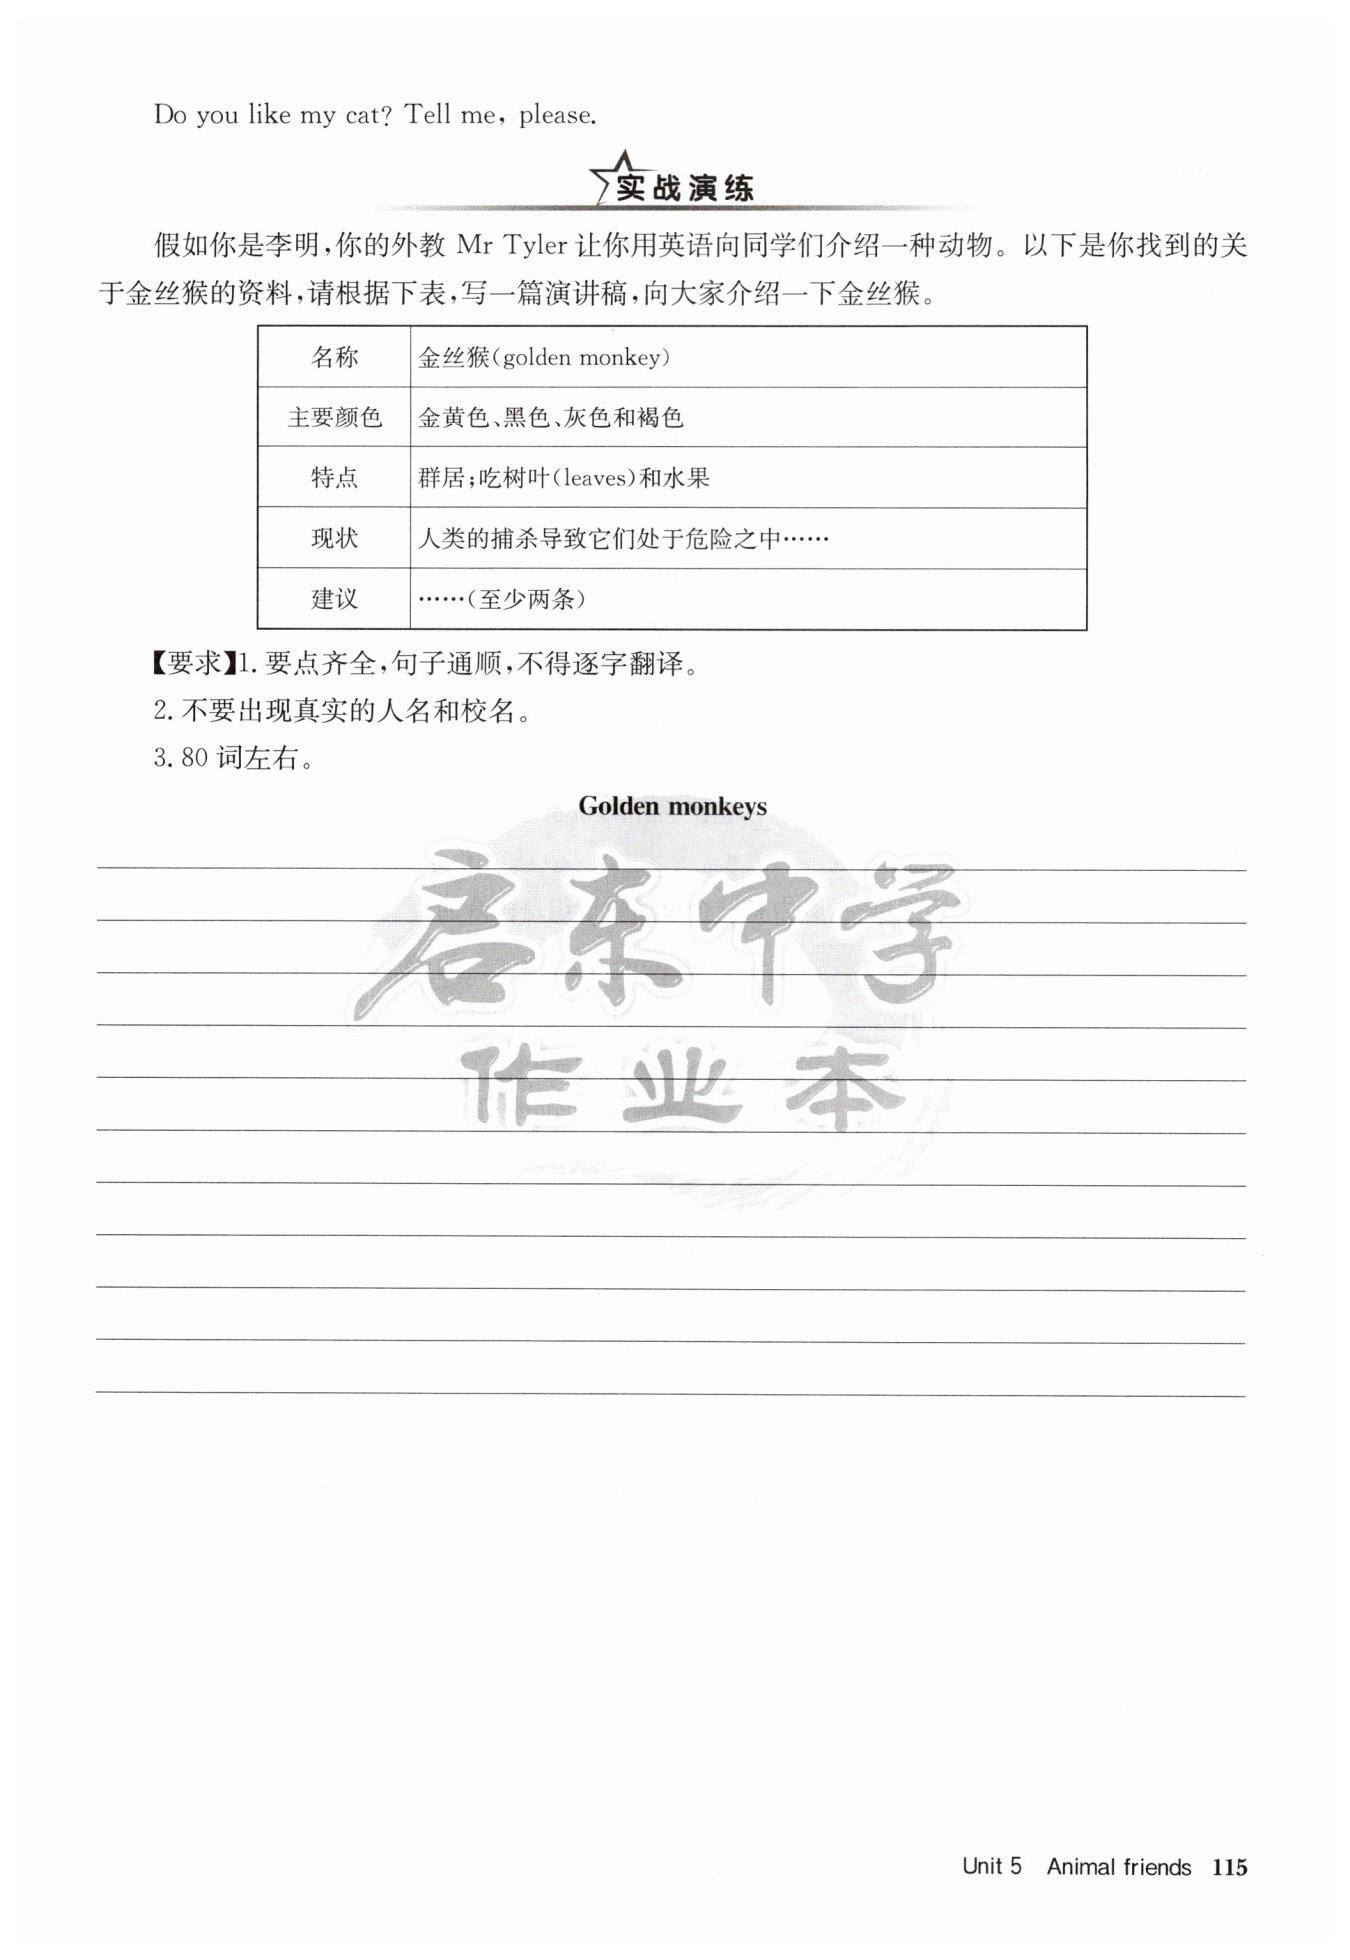 Do you like my cat? Tell me, please.
实战演练
假如你是李明,你的外教 Mr Tyler 让你用英语向同学们介绍一种动物。以下是你找到的关
于金丝猴的资料,请根据下表,写一篇演讲稿,向大家介绍一下金丝猴。
名称 金丝猴(golden monkey)
主要颜色 金黄色、黑色、灰色和褐色
特点 群居;吃树叶(leaves)和水果
现状 人类的捕杀导致它们处于危险之中……
建议 ……(至少两条)
【要求】1. 要点齐全,句子通顺,不得逐字翻译。
2. 不要出现真实的人名和校名。
3. 80 词左右。
Golden monkeys
启东中学
作业本
Unit 5 Animal friends 115